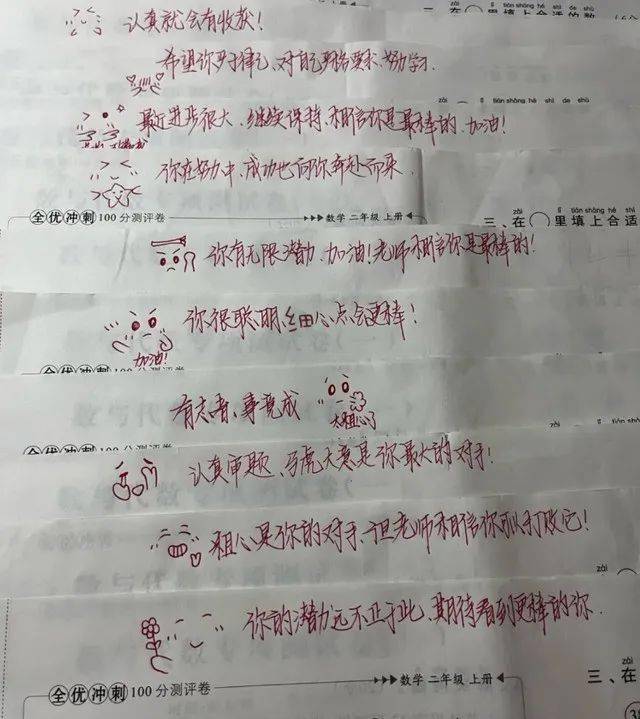 三、在（ ）里填上合适的数
tián shàng hé shì de shù
认真就会有收获！
希望你对自己严格要求、努力学习.
zài lǐ tián shàng hé shì de shù
最近进步很大、继续保持、相信你是最棒的、加油！
你在努力中、成功也向你奔赴而来.
全优冲刺100分测评卷 数学 二年级 上册
zài lǐ tián shàng hé shì
三、在（ ）里填上合适
你有无限潜力、加油！老师相信你是最棒的！
你很聪明、细心点会更棒！
加油！
全优冲刺100分测评卷
有志者、事竟成
太粗心了
全优冲刺100分测评卷
认真审题、马虎大意是你最大的对手！
粗心是你的对手、但老师相信你可以打败它！
zài
你的潜力远不止于此、期待看到更棒的你.
zài
三、在
全优冲刺100分测评卷 数学 二年级 上册